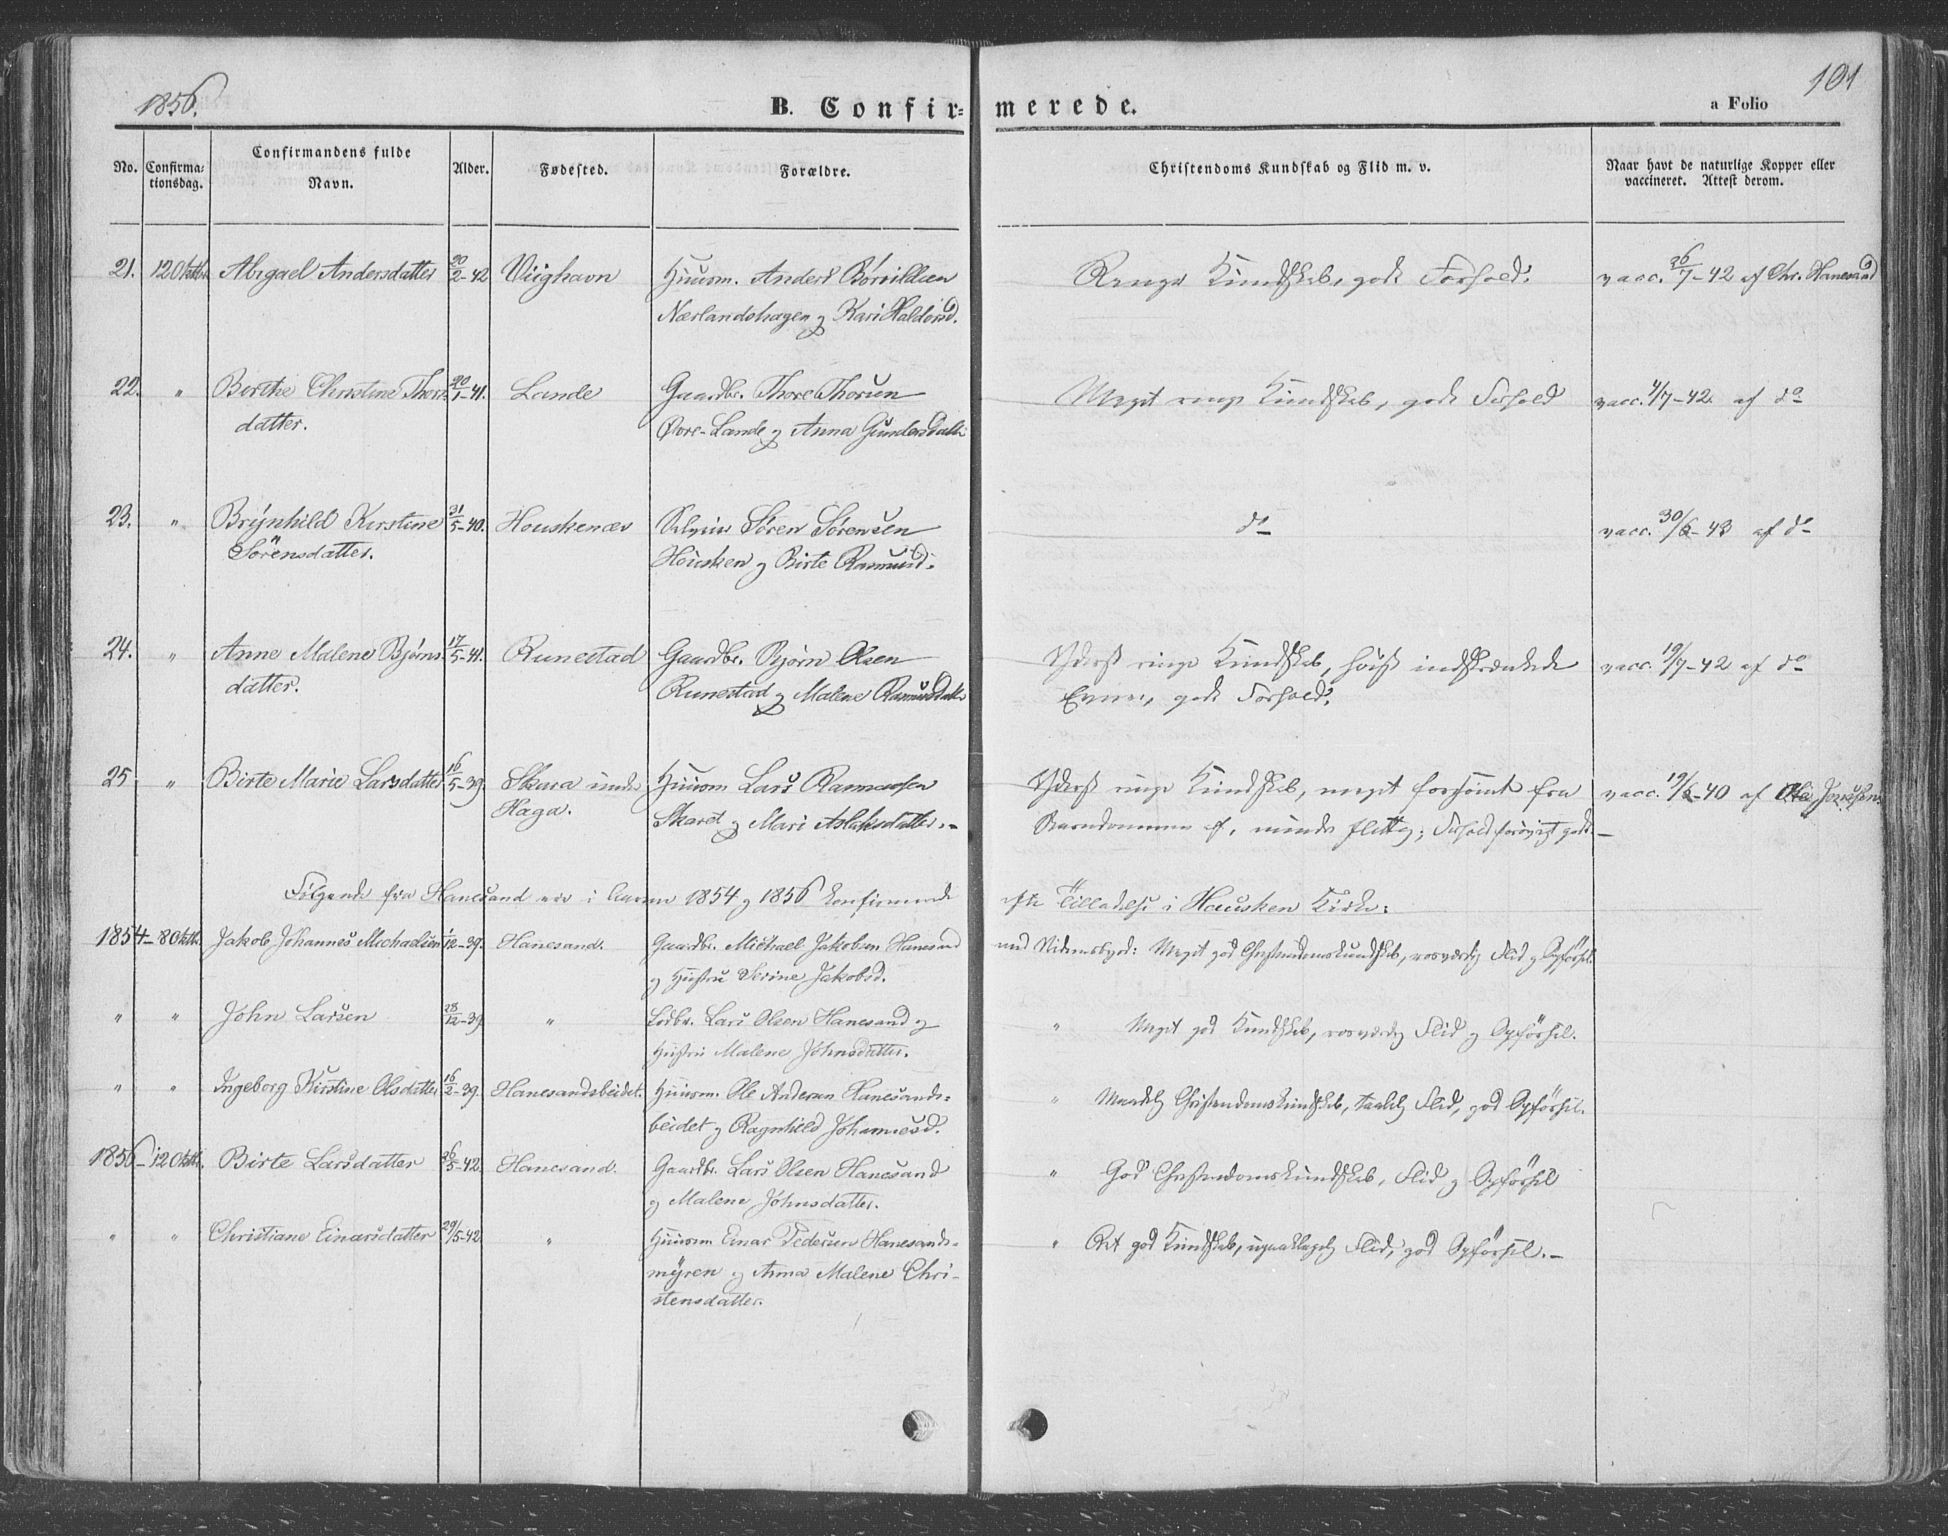 1856.
B. Confirmerede.
a Folio
101
No.
Confirmationsdag.
Confirmandens fulde Navn.
Alder.
Fødested.
Forældre.
Christendoms Kundskab og Flid m. v.
Naar havt de naturlige Kopper eller vaccineret. Attest derom.
21. 12 Oktb. Abigael Andersdatter 20/2-42 Viighavn Huusm. Anders Ringe Kundskab, godt Forhold. vacc. 26/7-42 af Chr. Hanesand
Nærlandshagen og Kari Haldorsd.
22. " Berthe Christine Thors 20/1-41. Lande Gaardbr. Thore Thorsen Meget ringe Kundskab, godt Forhold vacc. 4/7-42 af do
datter. Øvre-Lande og Anna Gundersdatter
23. " Brynhild Kirstine 31/5-40. Houskenæs Søren Sørensen do vacc. 30/6-43 af do
Sörensdatter. Housken og Birte Rasmusd.
24. " Anne Malene Bjørns 17/5-41. Runestad Gaardbr. Bjørn Olsen Yderst ringe Kundskab, høist indskrænkede vacc. 19/7-42 af do
datter. Runestad og Malene Rasmusdatter Evner, godt Forhold.
25 " Birte Marie Larsdatter 16/5-39. Skara under Huusm. Lars Rasmussen Yderst ringe Kundskab, meget forsömt fra vacc. 19/6-40 af Ole
Haga. Skaret og Mari Aslaksdatter. Barndommen af, mindre flittig; Forhold forøvrigt godt
Følgende fra Hanesand ere i Aarene 1854 og 1856 konfirmerede efter Tilladelse i Housken Kirke:
1854- 8 Oktb. Jakob Johannes Michaelsen 1/12-39. Hanesand. Gaardbr. Michael Jakobsen Hanesand med Vidnesbyrd: Meget god Christendomskundskab, rosværdig Flid og Opførsel.
og Hustru Serine Jakobsd.
" " John Larsen 28/12-39 " Lars Olsen Hanesand og " Meget god Kundskab, rosværdig Flid og Opförsel.
Hustru Malene Johnsdatter.
" " Ingeborg Kirstine Olsdatter 16/2-39. Hanesandsbeidet. Huusm. Ole Andersen Hanesands- " Maadelig Christendomskundskab, taalelig Flid, god Opförsel.
beidet og Ragnhild Johannesd.
1856- 12 Oktb. Birte Larsdatter 26/5-42. Hanesand. Gaardbr. Lars Olsen Hanesand " God Christendomskundskab, Flid og Opförsel
og Malene Johnsdatter.
" " Christiane Einarsdatter 29/5-42 " Huusm Einar Pedersen Hanesands- " Ret god Kundskab, upaaklagelig Flid, god Opförsel.
myren og Anna Malene Chri-
stensdatter.